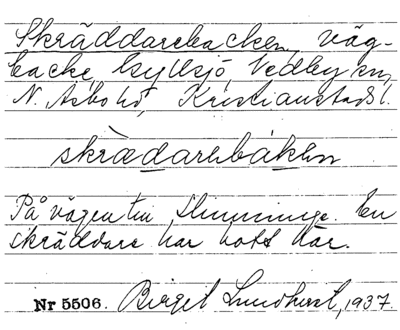 Skräddarebacken, väg-
backe, Kyllsjö, Vedby sn,
N. Åsbo hd, Kristianstads l.
skrædarebáken
På vägen till Slimminge. En
skräddare har bott där.
Nr 5506. Birgit Lundqvist, 1937.